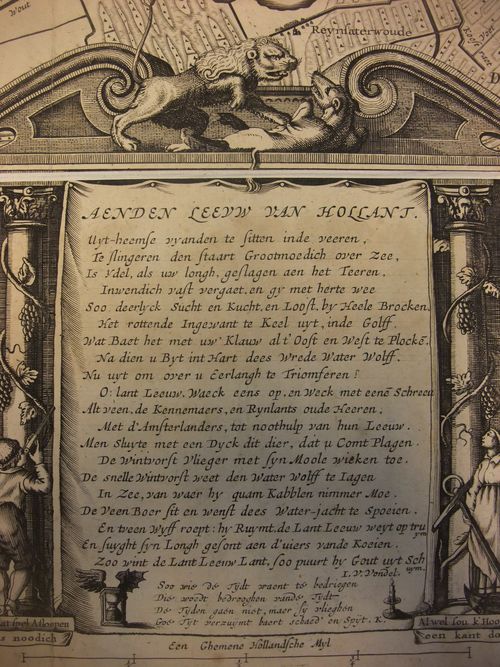 Wout
Reynsaterwoude
AENDEN LEEUW VAN HOLLANT.
Uyt-heemse vyanden te sitten inde veeren,
Te slingeren den staart Grootmoedich over Zee,
Is Ydel, als uw longh, geslagen aen het Teeren,
Inwendich vast vergaet, en gy met herte wee
Soo deerlyck Sucht en Kucht, en Loost, by Heele Brocken,
Het rottende Ingewant te Keel uyt, inde Golff.
Wat Baet het met uw' Klauw al t' Oost en West te Plockē,
Na dien u Byt int Hart dees Wrede Water Wolff.
Nu uyt om over u Eerlangh te Triomferen?
O: lant Leeuw, Waeck eens op, en Weck met eenē Schreeu
Alt veen, de Kennemaers, en Rynlants oude Heeren,
Met d'Amsterlanders, tot noothulp van hun Leeuw.
Men Sluyte met een Dyck dit dier, dat u Comt Plagen.
De Wintvorst Vlieger met syn Moole wieken toe.
De snelle Wintvorst weet den Water Wolff te Iagen
In Zee, van waer hy quam Kabblen nimmer Moe.
De Veen Boer sit en wenst dees Water-jacht te Spoeien.
En tveen Wyff roept: hy Ruymt, de Lant Leeuw weyt op tru
ym
En suyght syn Longh gesont aen d'uiers vande Koeien.
Zoo wint de Lant Leeuw Lant, soo puurt hy Gout uyt Sch
uym.
I. V. Vondel.
Soo wie de Tydt waent te bedriegen
Die wordt bedrooghen vande Tydt
De Tyden gaen niet, maer sy vlieghen
Goe Tyt verzuymt baert schaed' en Spyt. K.
at spel Afloopen
s noodich
Al wel sou k' Hoo
een kant do
Een Ghemene Hollandsche Myl